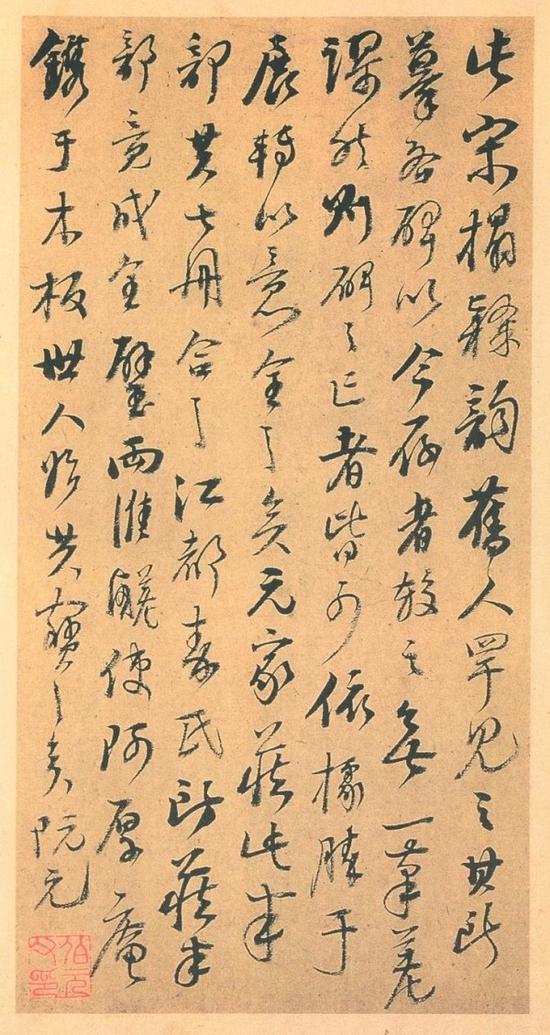 此宋榻隸韻舊人罕見之其所
摹各碑以今存者較之無一筆差
謬然則碑之亡者皆可依據勝于
展轉以意全之矣元家藏此半
部共七册合之江都秦氏所藏半
部竟成全璧兩淮鹺使阿厚庵
鐫于木板世人將共寶之矣阮元